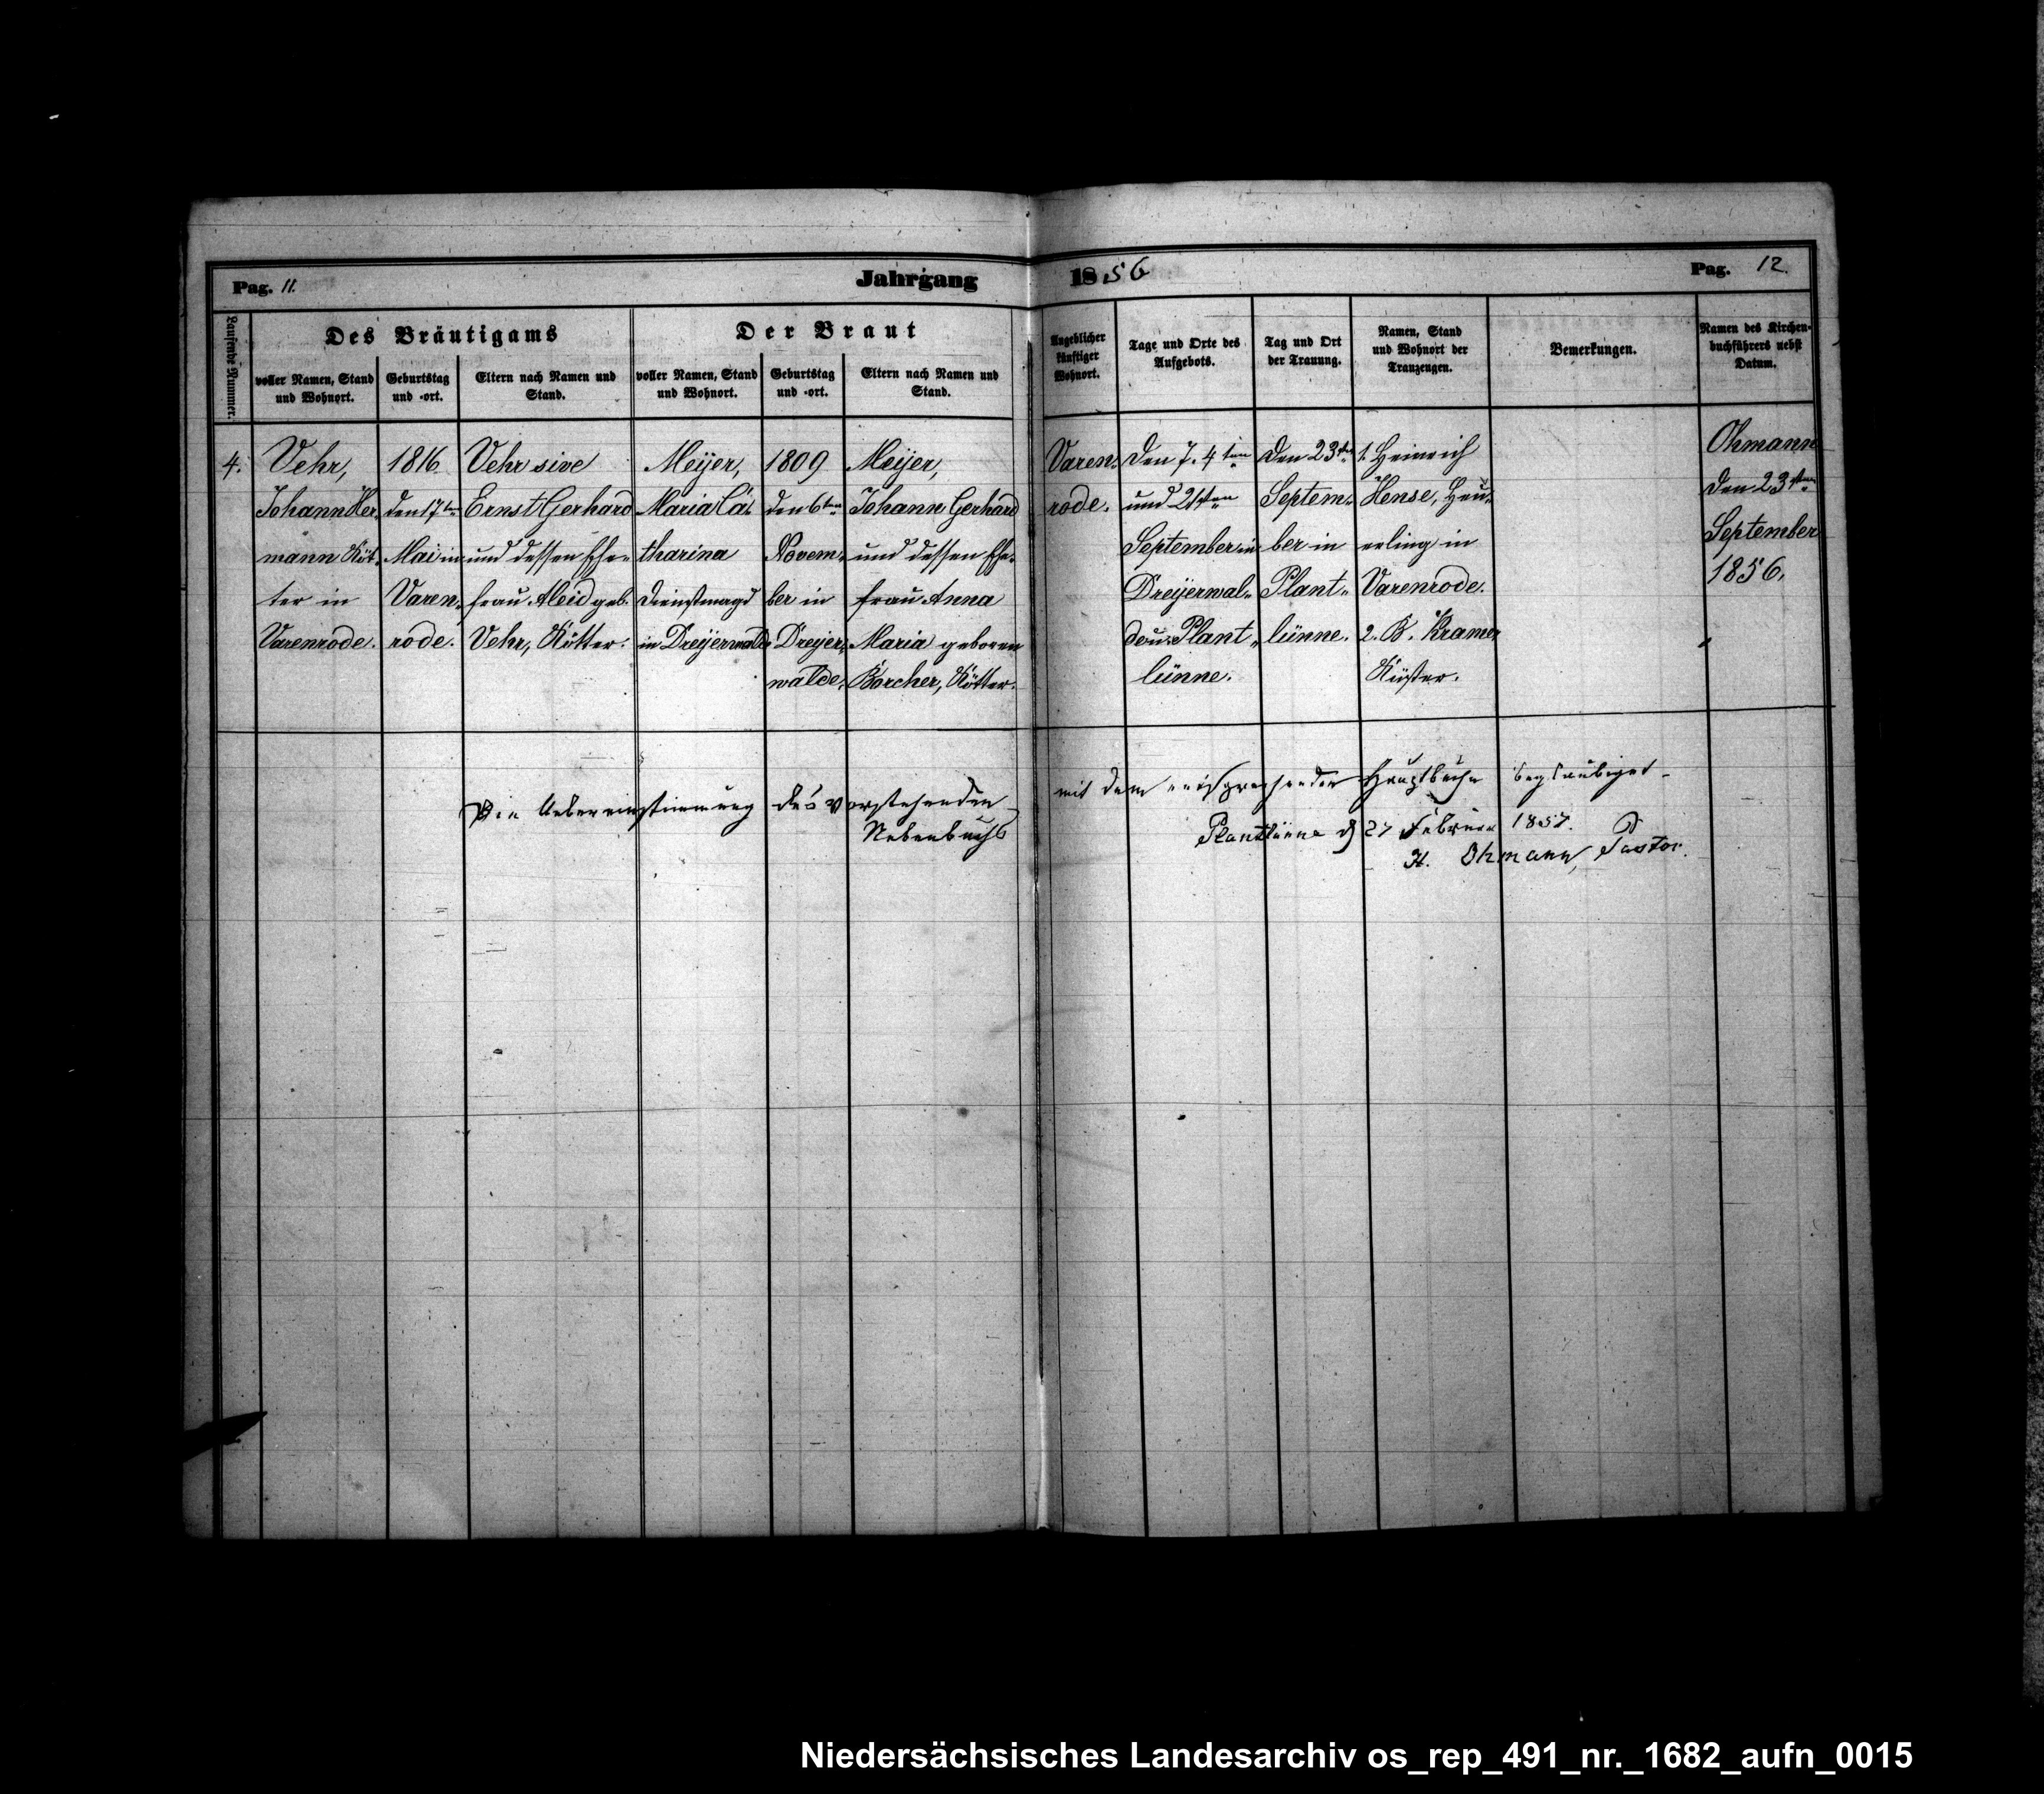 Pag. 11.
Jahrgang 1856
Pag. 12.
Laufende Nummer.
Des Bräutigams
voller Namen, Stand
und Wohnort.
Geburtstag
und -ort.
Eltern nach Namen und
Stand.
Der Braut
voller Namen, Stand
und Wohnort.
Geburtstag
und -ort.
Eltern nach Namen und
Stand.
Angeblicher
künftiger
Wohnort.
Tage und Orte des
Aufgebots.
Tag und Ort
der Trauung.
Namen, Stand
und Wohnort der
Trauzeugen.
Bemerkungen.
Namen des Kirchen-
buchführers nebst
Datum.
4.
Vehr,
Johann Her-
mann Köt-
ter in
Varenrode.
1816
den 17ten
Mai in
Varen-
rode.
Vehr sive
Ernst Gerhard
und dessen Ehe-
frau Aleid geb.
Vehr, Kötter.
Meÿer,
Maria Ca-
tharina
Dienstmagd
in Dreÿerwalde
1809
den 6ten
Novem-
ber in
Dreÿer-
walde.
Meÿer,
Johann Gerhard
und dessen Ehe-
frau Anna
Maria geboren
Borcher, Kötter.
Varen-
rode.
den 7. 4ten
und 21sten
September in
Dreÿerwal-
de u. Plant-
lünne.
den 23sten
Septem-
ber in
Plant-
lünne.
1. Heinrich
Hense, Heu-
erling in
Varenrode.
2. B. Kramer
Küster.
Ohmann
den 23sten
September
1856.
Die Uebereinstimmung des vorstehenden
Nebenbuchs
mit dem entsprechenden Hauptbuche beglaubiget
Plantlünne d 27 Februar 1857.
H. Ohmann, Pastor.
Niedersächsisches Landesarchiv os_rep_491_nr._1682_aufn_0015